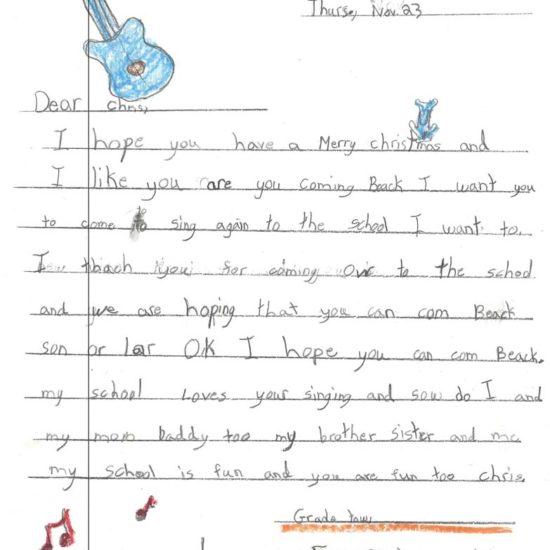 Thurse, Nov. 23
Dear chris,
I hope you have a Merry christmas and
I like you are you coming Beack I want you
to come to sing again to the school I want to.
I thach you for coming Ovr to the school
and we are hoping that you can com Beack
son or lar OK I hope you can com Beack.
my school Loves your singing and sow do I and
my mom Daddy too my brother sister and me
my school is fun and you are fun too chris.
Grade tow,